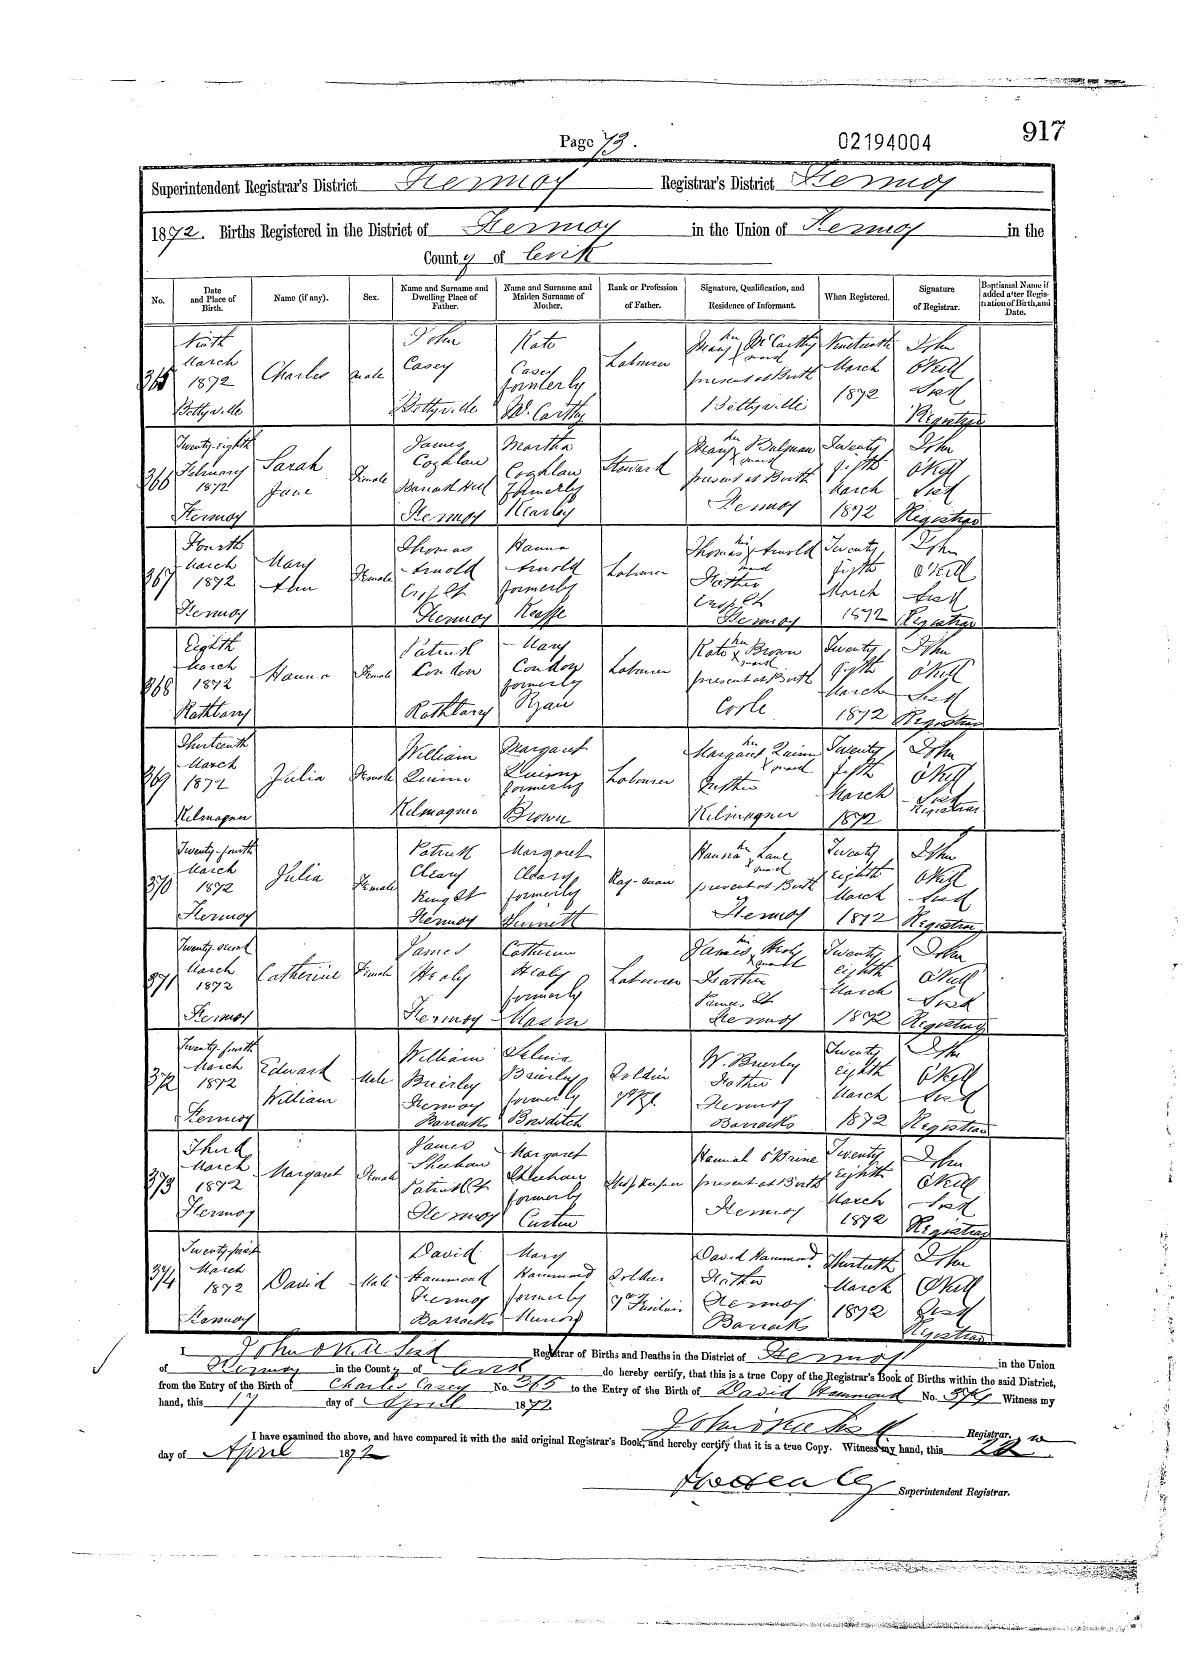 917
Page 73.
02194004
Superintendent Registrar's District Fermoy Registrar's District Fermoy
1872. Births Registered in the District of Fermoy in the Union of Fermoy in the
County of Cork
No. Date and Place of Birth. Name (if any). Sex. Name and Surname and Dwelling Place of Father. Name and Surname and Maiden Surname of Mother. Rank or Profession of Father. Signature, Qualification, and Residence of Informant. When Registered. Signature of Registrar. Baptismal Name if added after Registration of Birth, and Date.
365 Ninth March 1872 Bettyville Charles Male John Casey Bettyville Kate Casey formerly McCarthy Labourer Mary her x mark McCarthy present at Birth Bettyville Nineteenth March 1872 John O'Neill Registrar
366 Twenty-eighth February 1872 Fermoy Sarah Jane Female James Coghlan Barrack Hill Fermoy Martha Coghlan formerly Kearley Steward Mary her x mark present at Birth Fermoy Twenty fifth March 1872 John O'Neill Registrar
367 Fourth March 1872 Fermoy Mary Ann Female Thomas Arnold Fermoy Hanna Arnold formerly Keeffe Labourer Thomas his x mark Arnold Father Fermoy Twenty fifth March 1872 John O'Neill Registrar
368 Eighth March 1872 Rathbarry Hanna Female Patrick Condon Rathbarry Mary Condon formerly Ryan Labourer Kate her x mark Brown present at Birth Coole Twenty fifth March 1872 John O'Neill Registrar
369 Thirteenth March 1872 Kilmagner Julia Female William Quinn Kilmagner Margaret Quinn formerly Brown Labourer Margaret her x mark Quinn Mother Kilmagner Twenty fifth March 1872 John O'Neill Registrar
370 Twenty-fourth March 1872 Fermoy Julia Female Patrick Cleary King St Fermoy Margaret Cleary formerly Sinnott Rag-man Hanna her x mark Lane present at Birth Fermoy Twenty eighth March 1872 John O'Neill Registrar
371 Twenty-second March 1872 Fermoy Catherine Female James Healy Fermoy Catherine Healy formerly Mason Labourer James his x mark Healy Father Fermoy Twenty eighth March 1872 John O'Neill Registrar
372 Twenty-fourth March 1872 Fermoy Edward William Male William Brierley Fermoy Barracks Selina Brierley formerly Bowditch Soldier W. Brierley Father Fermoy Barracks Twenty eighth March 1872 John O'Neill Registrar
373 Third March 1872 Fermoy Margaret Female James Sheehan Patrick St Fermoy Margaret Sheehan formerly Curtin Shopkeeper Hannah O'Brine present at Birth Fermoy Twenty eighth March 1872 John O'Neill Registrar
374 Twenty-first March 1872 Fermoy David Male David Hammond Fermoy Barracks Mary Hammond formerly Soldier 7th Fusiliers David Hammond Father Fermoy Barracks Thirtieth March 1872 John O'Neill Registrar
I John O'Neill Registrar of Births and Deaths in the District of Fermoy in the Union
of Fermoy in the County of Cork do hereby certify, that this is a true Copy of the Registrar's Book of Births within the said District,
from the Entry of the Birth of Charles Casey No. 365 to the Entry of the Birth of David Hammond No. 374 Witness my
hand, this 17 day of April 1872
John O'Neill Registrar.
I have examined the above, and have compared it with the said original Registrar's Book, and hereby certify that it is a true Copy. Witness my hand, this 22
day of April 1872
Superintendent Registrar.